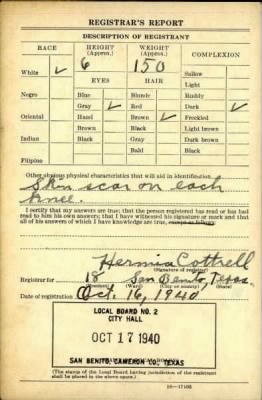 REGISTRAR'S REPORT
DESCRIPTION OF REGISTRANT
RACE HEIGHT (Approx.) WEIGHT (Approx.) COMPLEXION
White ✓ 6 150 Sallow
EYES HAIR Light
Negro Blue Blonde Ruddy
Gray ✓ Red Dark ✓
Oriental Hazel Brown ✓ Freckled
Brown Black Light brown
Indian Black Gray Dark brown
Bald Black
Filipino
Other obvious physical characteristics that will aid in identification
Skin scar on each
knee.
I certify that my answers are true; that the person registered has read or has had
read to him his own answers; that I have witnessed his signature or mark and that
all of his answers of which I have knowledge are true, except as follows:
Hermia Cottrell
(Signature of registrar)
Registrar for 18 San Benito, Texas
(Precinct) (Ward) (City or county) (State)
Date of registration Oct. 16, 1940
LOCAL BOARD NO. 2
CITY HALL
OCT 17 1940
SAN BENITO, CAMERON CO., TEXAS
(The stamp of the Local Board having jurisdiction of the registrant
shall be placed in the above space.)
16—17105